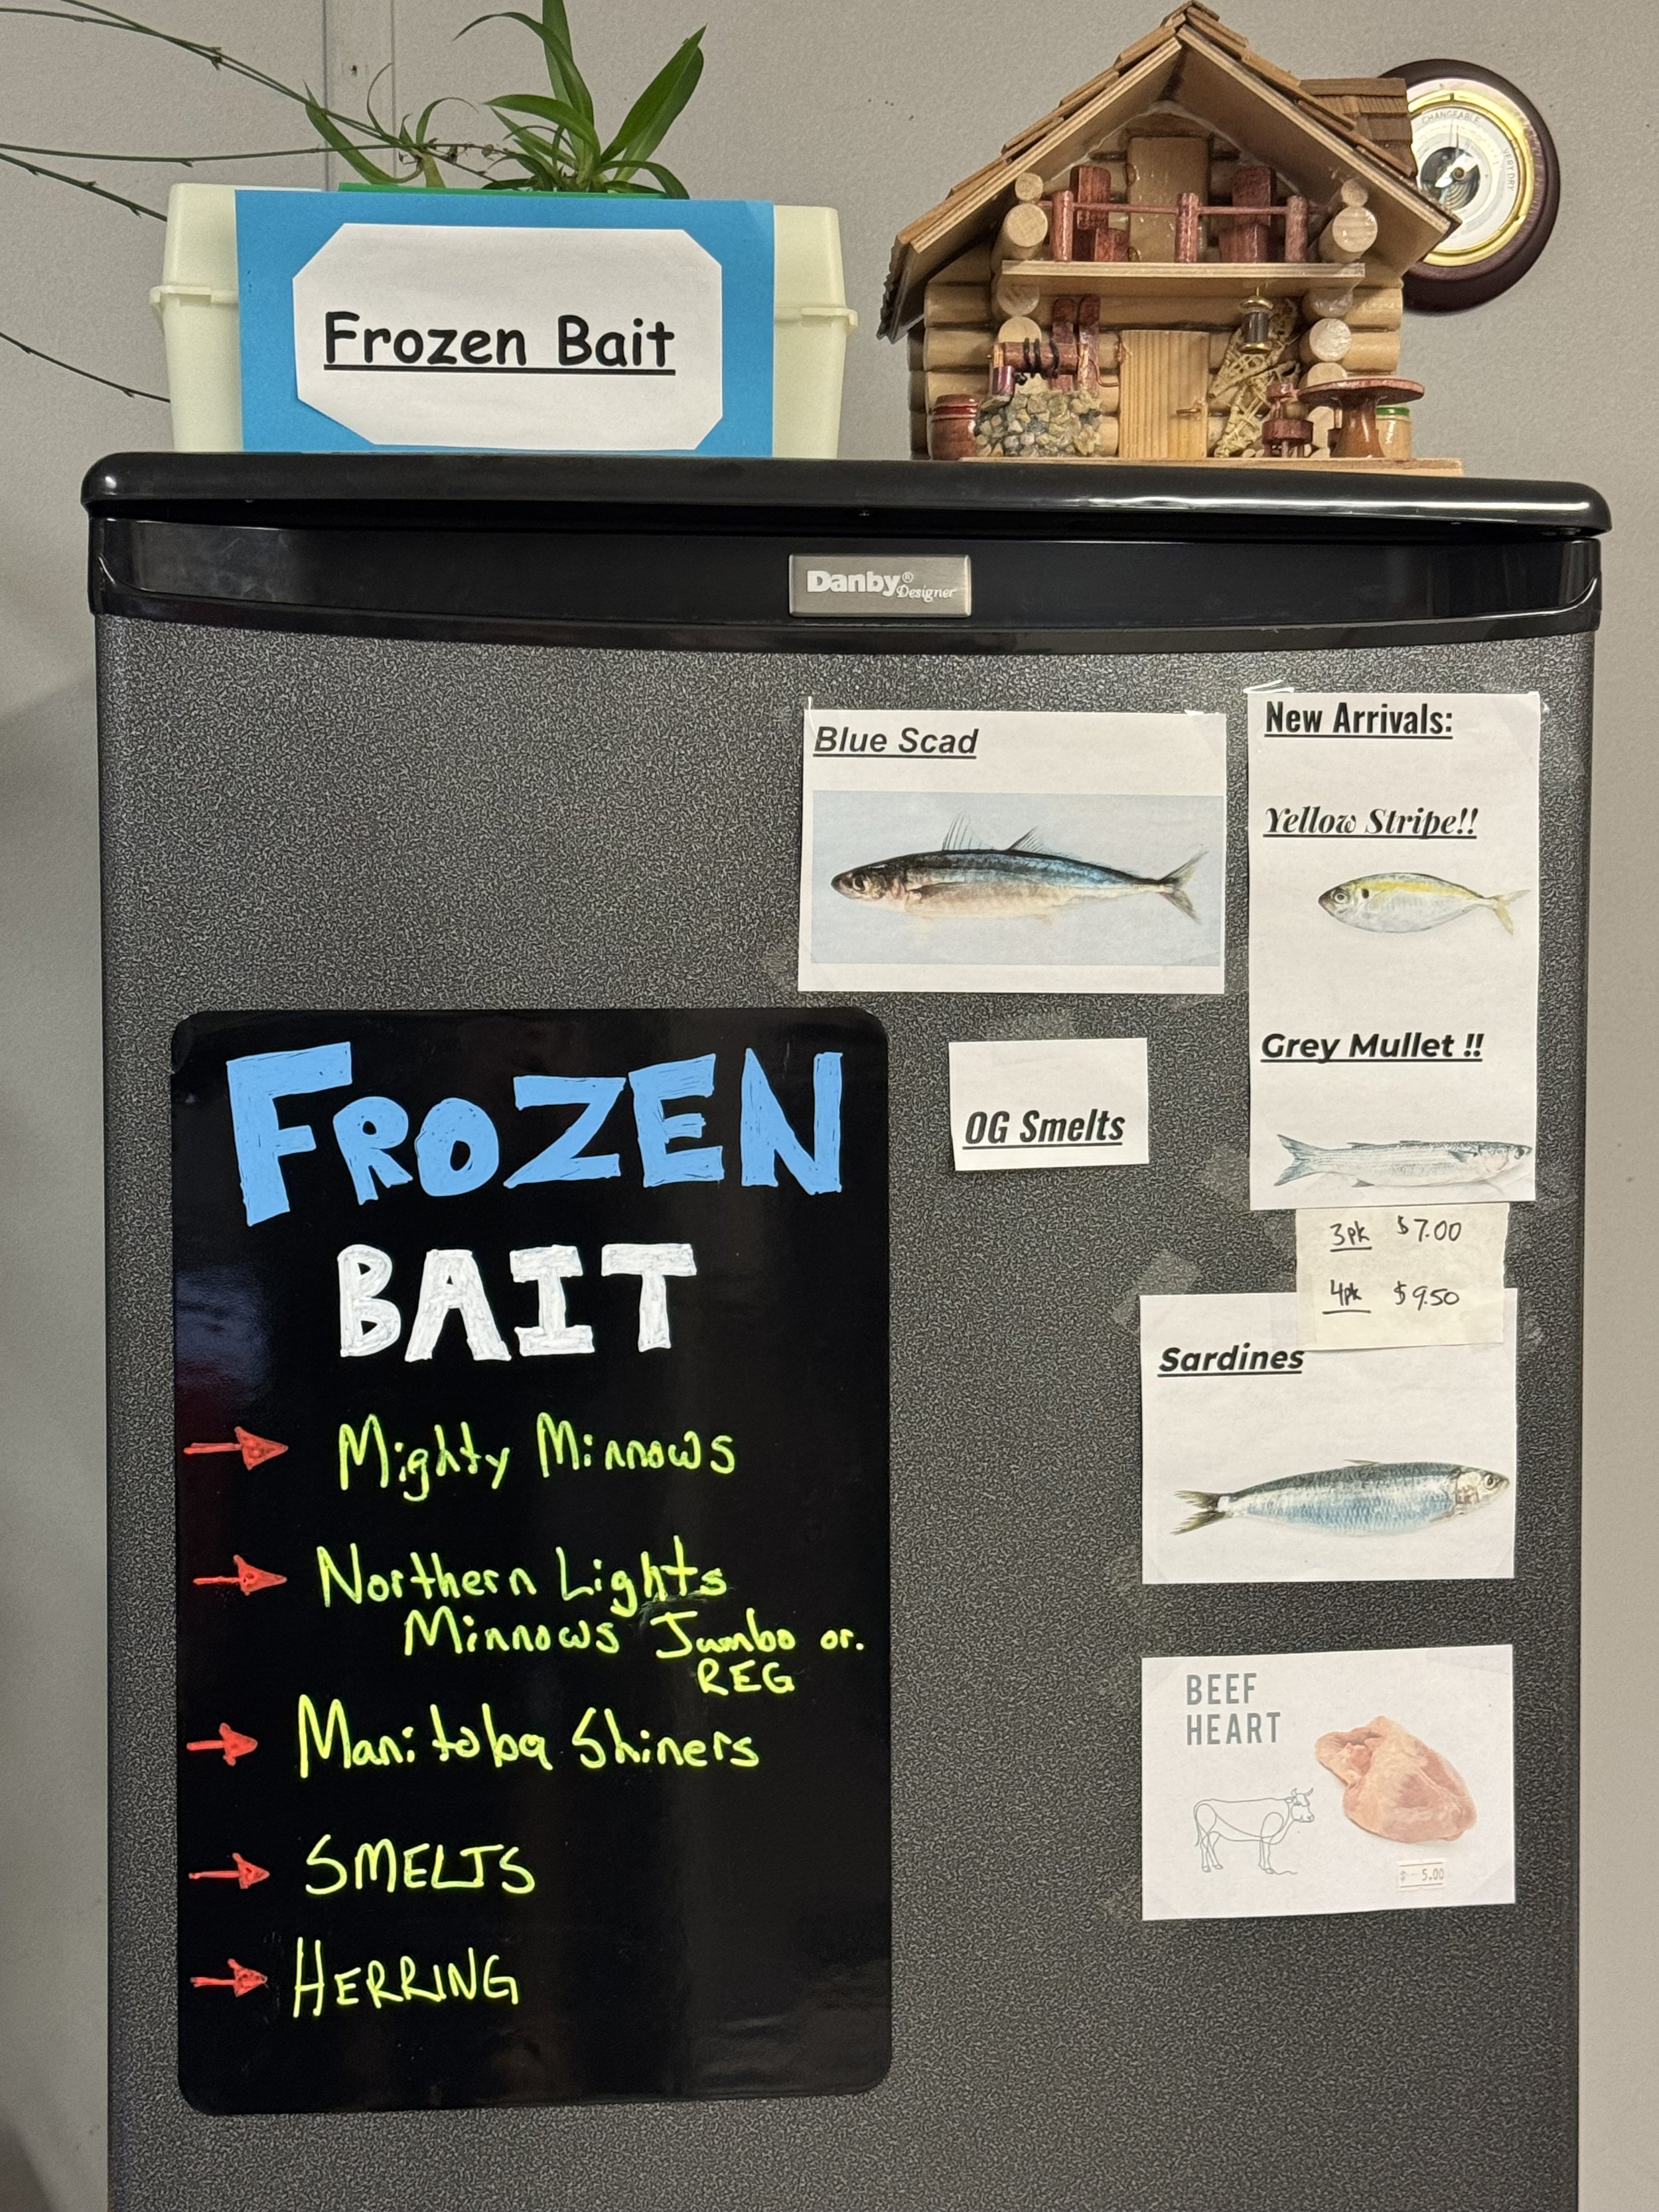 Frozen Bait
CHANGEABLE
VERY DRY
Danby® Designer
Blue Scad
New Arrivals:
Yellow Stripe!!
Grey Mullet !!
OG Smelts
3pk $7.00
4pk $9.50
Sardines
BEEF
HEART
$ - 5.00
FROZEN
BAIT
Mighty Minnows
Northern Lights
Minnows Jumbo or.
REG
Manitoba Shiners
SMELTS
HERRING